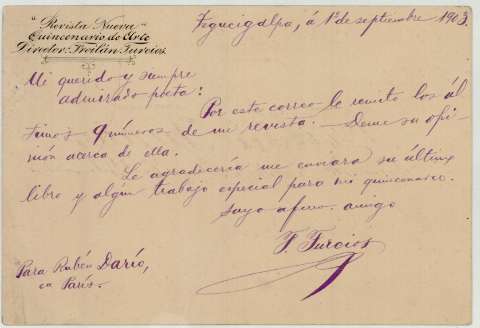 "Revista Nueva"
Quincenario de Arte
Director: Froilán Turcios.
Tegucigalpa, á 1º de septiembre 1903.
Mi querido y siempre
admirado poeta:
Por este correo le remito los úl-
timos 9 números de mi revista. — Deme su opi-
nión acerca de ella.
Le agradecería me enviara su último
libro y algún trabajo especial para mi quincenario.
Suyo afmo. amigo
F. Turcios
Para Rubén Darío,
en París.